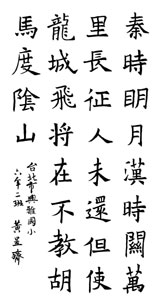 秦時明月漢時關萬
里長征人未還但使
龍城飛将在不教胡
馬度陰山
台北市興雅國小
六年二班 黃